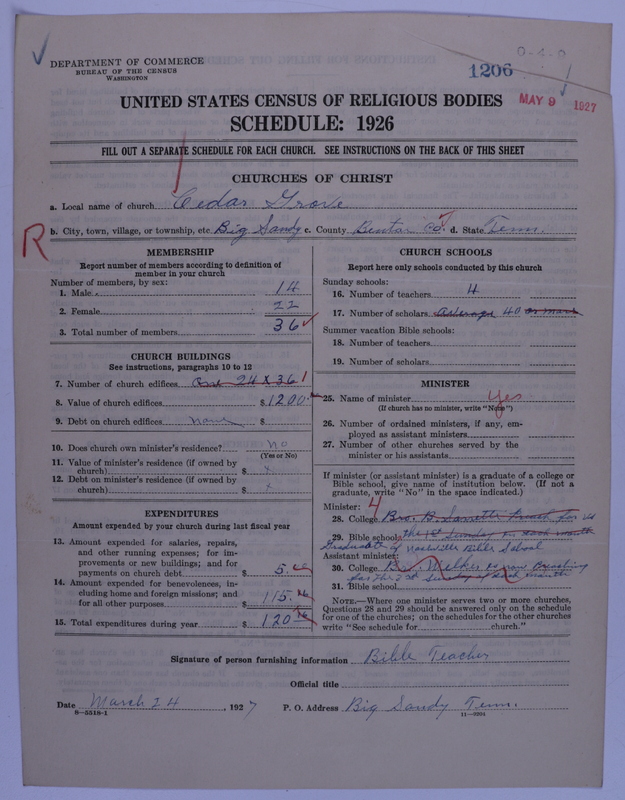 DEPARTMENT OF COMMERCE
BUREAU OF THE CENSUS
WASHINGTON
0-4-0
1206
MAY 9 1927
UNITED STATES CENSUS OF RELIGIOUS BODIES
SCHEDULE: 1926
FILL OUT A SEPARATE SCHEDULE FOR EACH CHURCH. SEE INSTRUCTIONS ON THE BACK OF THIS SHEET
CHURCHES OF CHRIST
a. Local name of church Cedar Grove
R
b. City, town, village, or township, etc. Big Sandy c. County Benton Co. d. State Tenn.
MEMBERSHIP
Report number of members according to definition of
member in your church
Number of members, by sex:
1. Male 14
2. Female 22
3. Total number of members 36
CHURCH BUILDINGS
See instructions, paragraphs 10 to 12
7. Number of church edifices One 24 X 36 1
8. Value of church edifices $ 1200.
9. Debt on church edifices none $
10. Does church own minister's residence? No
(Yes or No)
11. Value of minister's residence (if owned by
church) $ x
12. Debt on minister's residence (if owned by
church) $ x
EXPENDITURES
Amount expended by your church during last fiscal year
13. Amount expended for salaries, repairs,
and other running expenses; for im-
provements or new buildings; and for
payments on church debt $ 5.00
14. Amount expended for benevolences, in-
cluding home and foreign missions; and
for all other purposes $ 115.
15. Total expenditures during year $ 120
CHURCH SCHOOLS
Report here only schools conducted by this church
Sunday schools:
16. Number of teachers 4
17. Number of scholars average 40 or more
Summer vacation Bible schools:
18. Number of teachers
19. Number of scholars
MINISTER
25. Name of minister yes
(If church has no minister, write "None")
26. Number of ordained ministers, if any, em-
ployed as assistant ministers
27. Number of other churches served by the
minister or his assistants
If minister (or assistant minister) is a graduate of a college or
Bible school, give name of institution below. (If not a
graduate, write "No" in the space indicated.)
Minister: 4
28. College Bro. B. for us
29. Bible school the 1st Sunday in each month
Graduate of Nashville Bible School
Assistant minister:
30. College Bro. is now Preaching
for the 3rd Sunday of each month
31. Bible school
NOTE.—Where one minister serves two or more churches,
Questions 28 and 29 should be answered only on the schedule
for one of the churches; on the schedules for the other churches
write "See schedule for church."
Signature of person furnishing information Bible Teacher
Official title
Date March 24, 1927 P. O. Address Big Sandy Tenn.
8-5518-1 11-9394